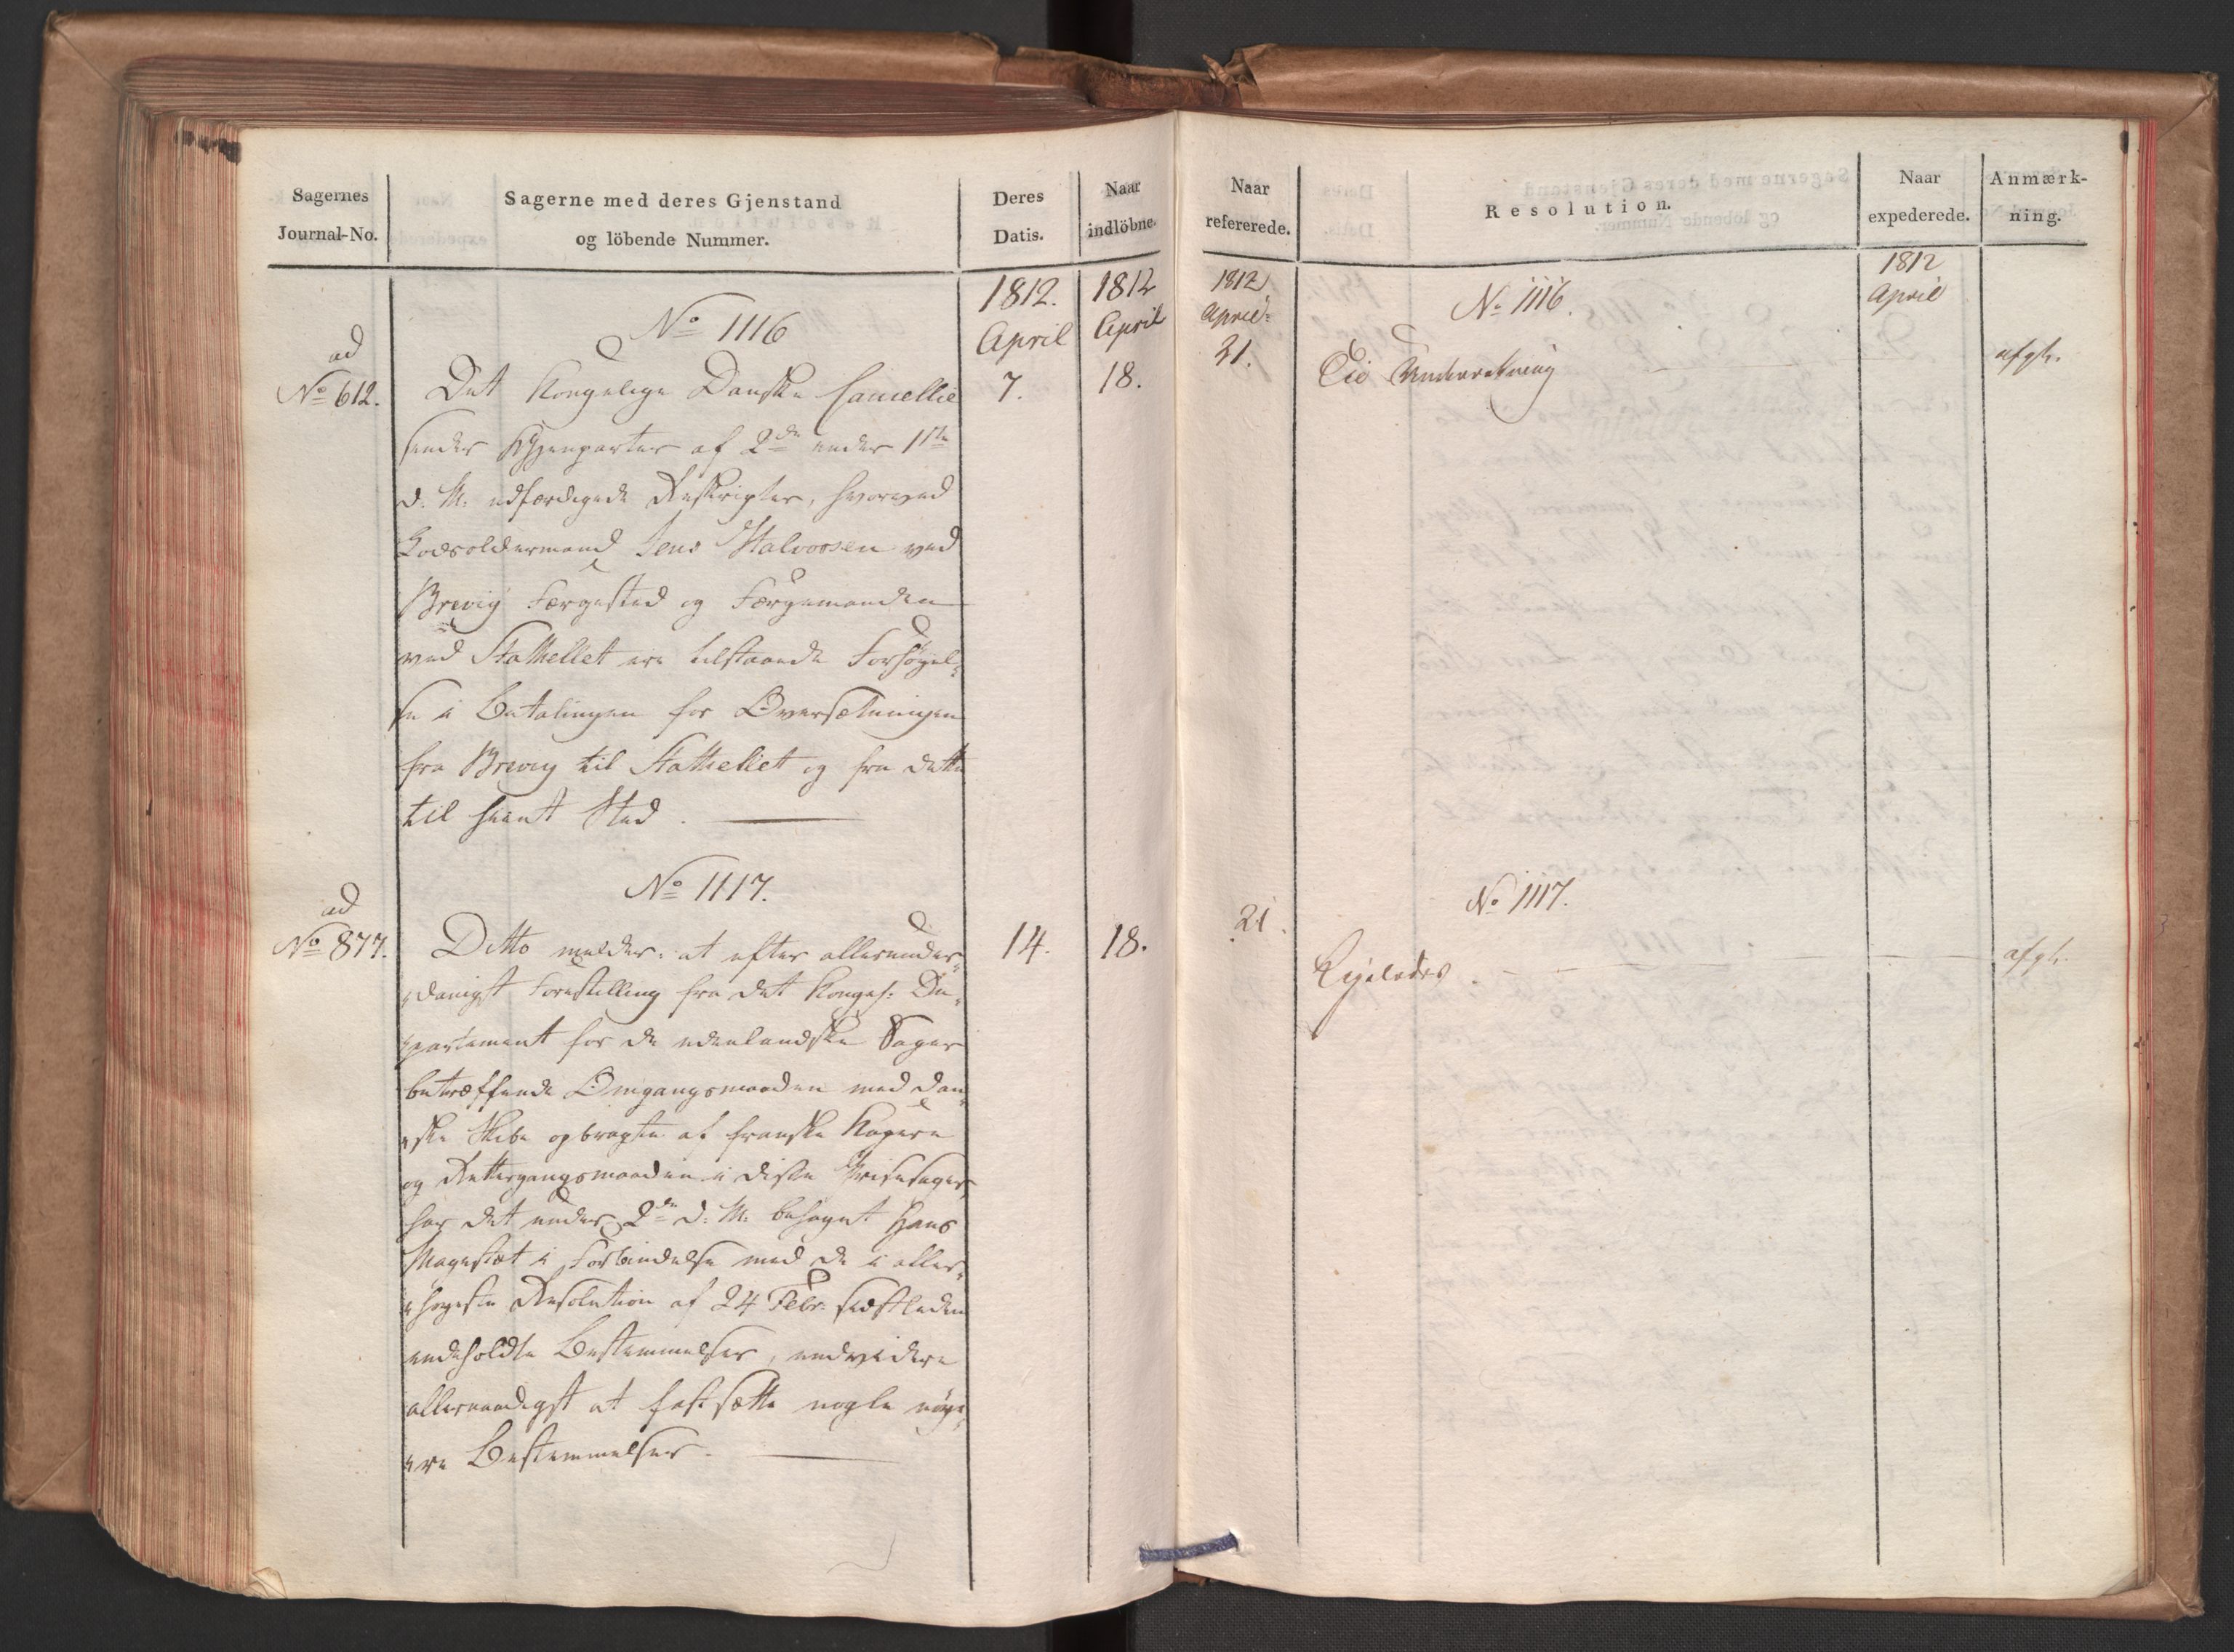 Sagernes
Journal-No.
Sagerne med deres Gjenstand
og löbende Nummer.
Deres
Datis.
Naar
indlöbne.
1812.
April
1812
April
No 1116
ad
No 612.
Det Kongelige Danske Cancellie
7.
18.
sender Gjenparter af 2de under 1ste
d: M: udfærdigede Rescripter, hvorved
Lodsoldermand Jens Halvorsen ved
Brevig Færgested og Færgemanden
ved Stathellet ere tilstaaede Forhøyel-
se i Betalingen for Oversætningen
fra Brevig til Stathellet og fra dette
til hiint Sted.
No 1117.
ad
No 877.
Ditto melder: at efter allerunder-
14.
18.
danigst Forestilling fra det Kongel: De-
partement for de udenlandske Sager
betræffende Omgangsmaaden med dan-
ske Skibe opbragte af franske Kapere
og Rettergangsmaaden i disse Prisesager,
har det under 2den d: M: behaget Hans
Magestæt i Forbindelse med de i aller-
høyeste Resolution af 24 Febr: sidstleden
indeholdte Bestemmelser, endvidere
allernaadigst at fastsætte nogle nøye-
ere Bestemmelser.
Naar
refererede.
Resolution.
Naar
expederede.
Anmærk-
ning.
1812
April
No 1116.
1812
April
21.
Til Underretning
afgk.
No 1117.
21.
Ligeledes.
afgk.